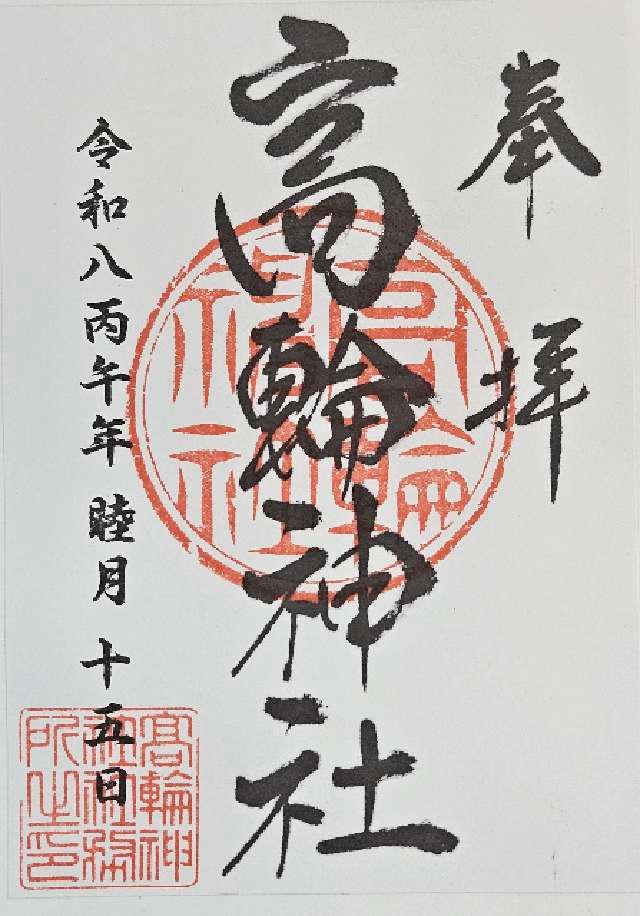 奉拝
高輪神社
令和八丙午年 睦月 十五日
高輪神社
高輪神
社社務
所之印